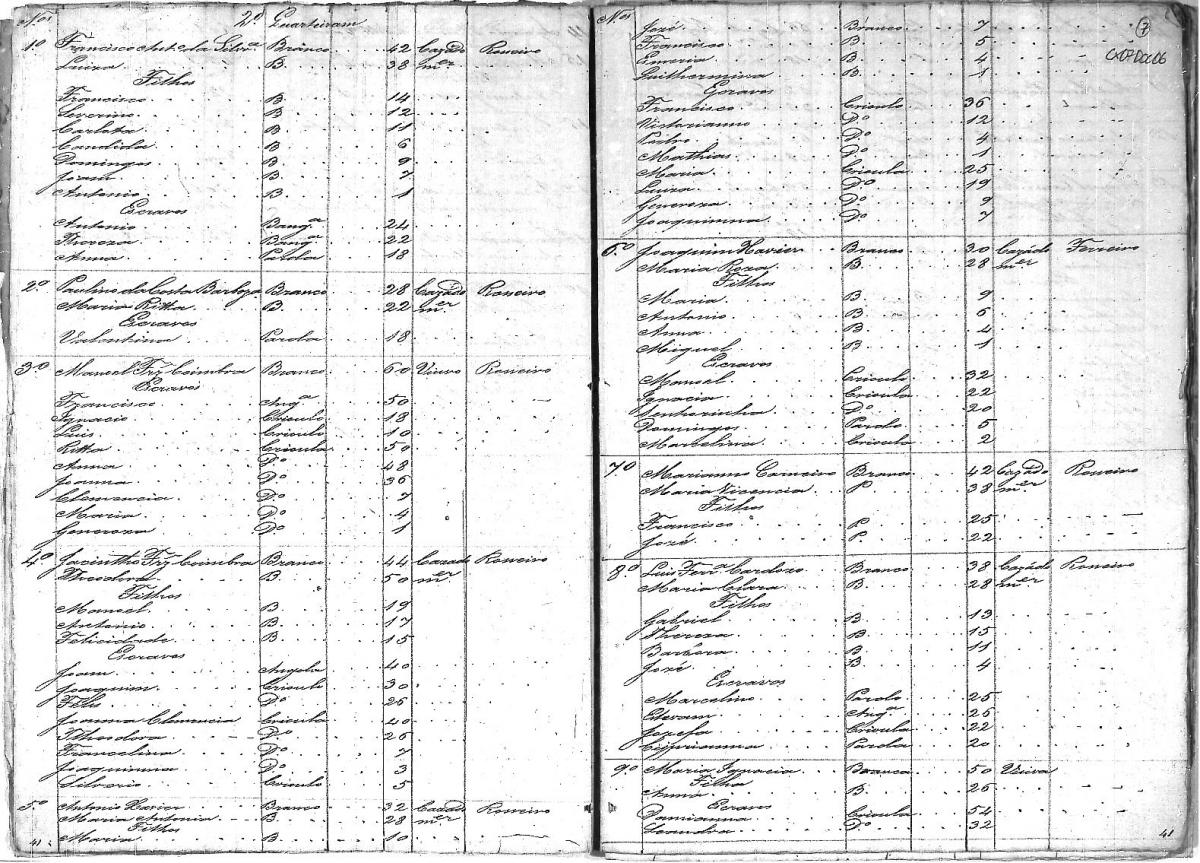 Nos 2º Quarteiram
1º Francisco Ant. da Silva Branco 42 Cazado Roneiro
Luiza B. 38 mer
Filhos
Francisco B 14
Severino B 12
Carlota B 11
Candida B 6
Domingos B 9
Joam B. 7
Antonio B. 1
Escravos
Antonio Bengª 24
Thereza Bengª 22
Anna Parda 18
2º Paulino da Costa Barboza Branco 28 Cazado Roneiro
Maria Ritta B. 22 mer
Escravos
Valentina Parda 18
3º Manoel Frz Coimbra Branco 60 Viuvo Roneiro
Escravos
Francisco Angª 50
Ignacio Crioulo 18
Luis Crioulo 10
Ritta Crioula 50
Anna Dº 48
Joanna Dº 36
Clemencia Dº 7
Maria Dº 4
Generoza Dº 1
4º Jacintho Frz Coimbra Branco 44 Cazado Roneiro
Theodora B 50 mer
Filhos
Manoel B 19
Antonio B. 17
Felicidade B. 15
Escravos
Joam Angola 40
Joaquim Crioulo 30
Felis Dº 26
Joanna Clemencia Crioula 40
Theodora Dº 26
Francelina Dº 7
Joaquinna Dº 3
Silverio Crioulo 5
5º Antonio Xavier Branco 32 Cazado Roneiro
Maria Antonia B. 28 mer
Filhos
Maria B 10
41
Nos
7
CX 07 DOC 06
Jozé Branco 7
Francisco B 5
B 4
Guilhermina B. 1
Escravos
Francisco Crioulo 36
Victorianno Dº 12
Pedro Dº 4
Mathias Dº 1
Maria Crioula 25
Luiza Dº 19
Generoza Dº 9
Joaquinna Dº 7
6º Joaquim Xavier Branco 30 Cazado Ferreiro
Maria Roza B. 28 mer
Filhos
Maria B 9
Antonio B 6
Anna B. 4
Miguel B 1
Escravos
Manoel Crioulo 32
Ignacia Crioula 22
Senhorinha Dº 20
Domingos Pardo 5
Marcelina Crioula 2
7º Marianno Carneiro Branco 42 Cazado Roneiro
Maria Vicencia P 38 mer
Filhos
Francisco P 25
Jozé P 22
8º Luis Ferrª Cardozo Branco 38 Cazado Roneiro
Maria Clara B 28 mer
Filhos
Gabriel B. 13
Thereza B. 15
Barbora B. 11
Jozé B 4
Escravos
Marcelino Pardo 25
Estevam Angª 26
Jozefa Crioula 22
Cyprianna Parda 20
9º Maria Ignacia Branca 50 Viuva
Filha
Anna B. 26
Escravos
Damianna Crioula 54
Leandra Dº 32
41